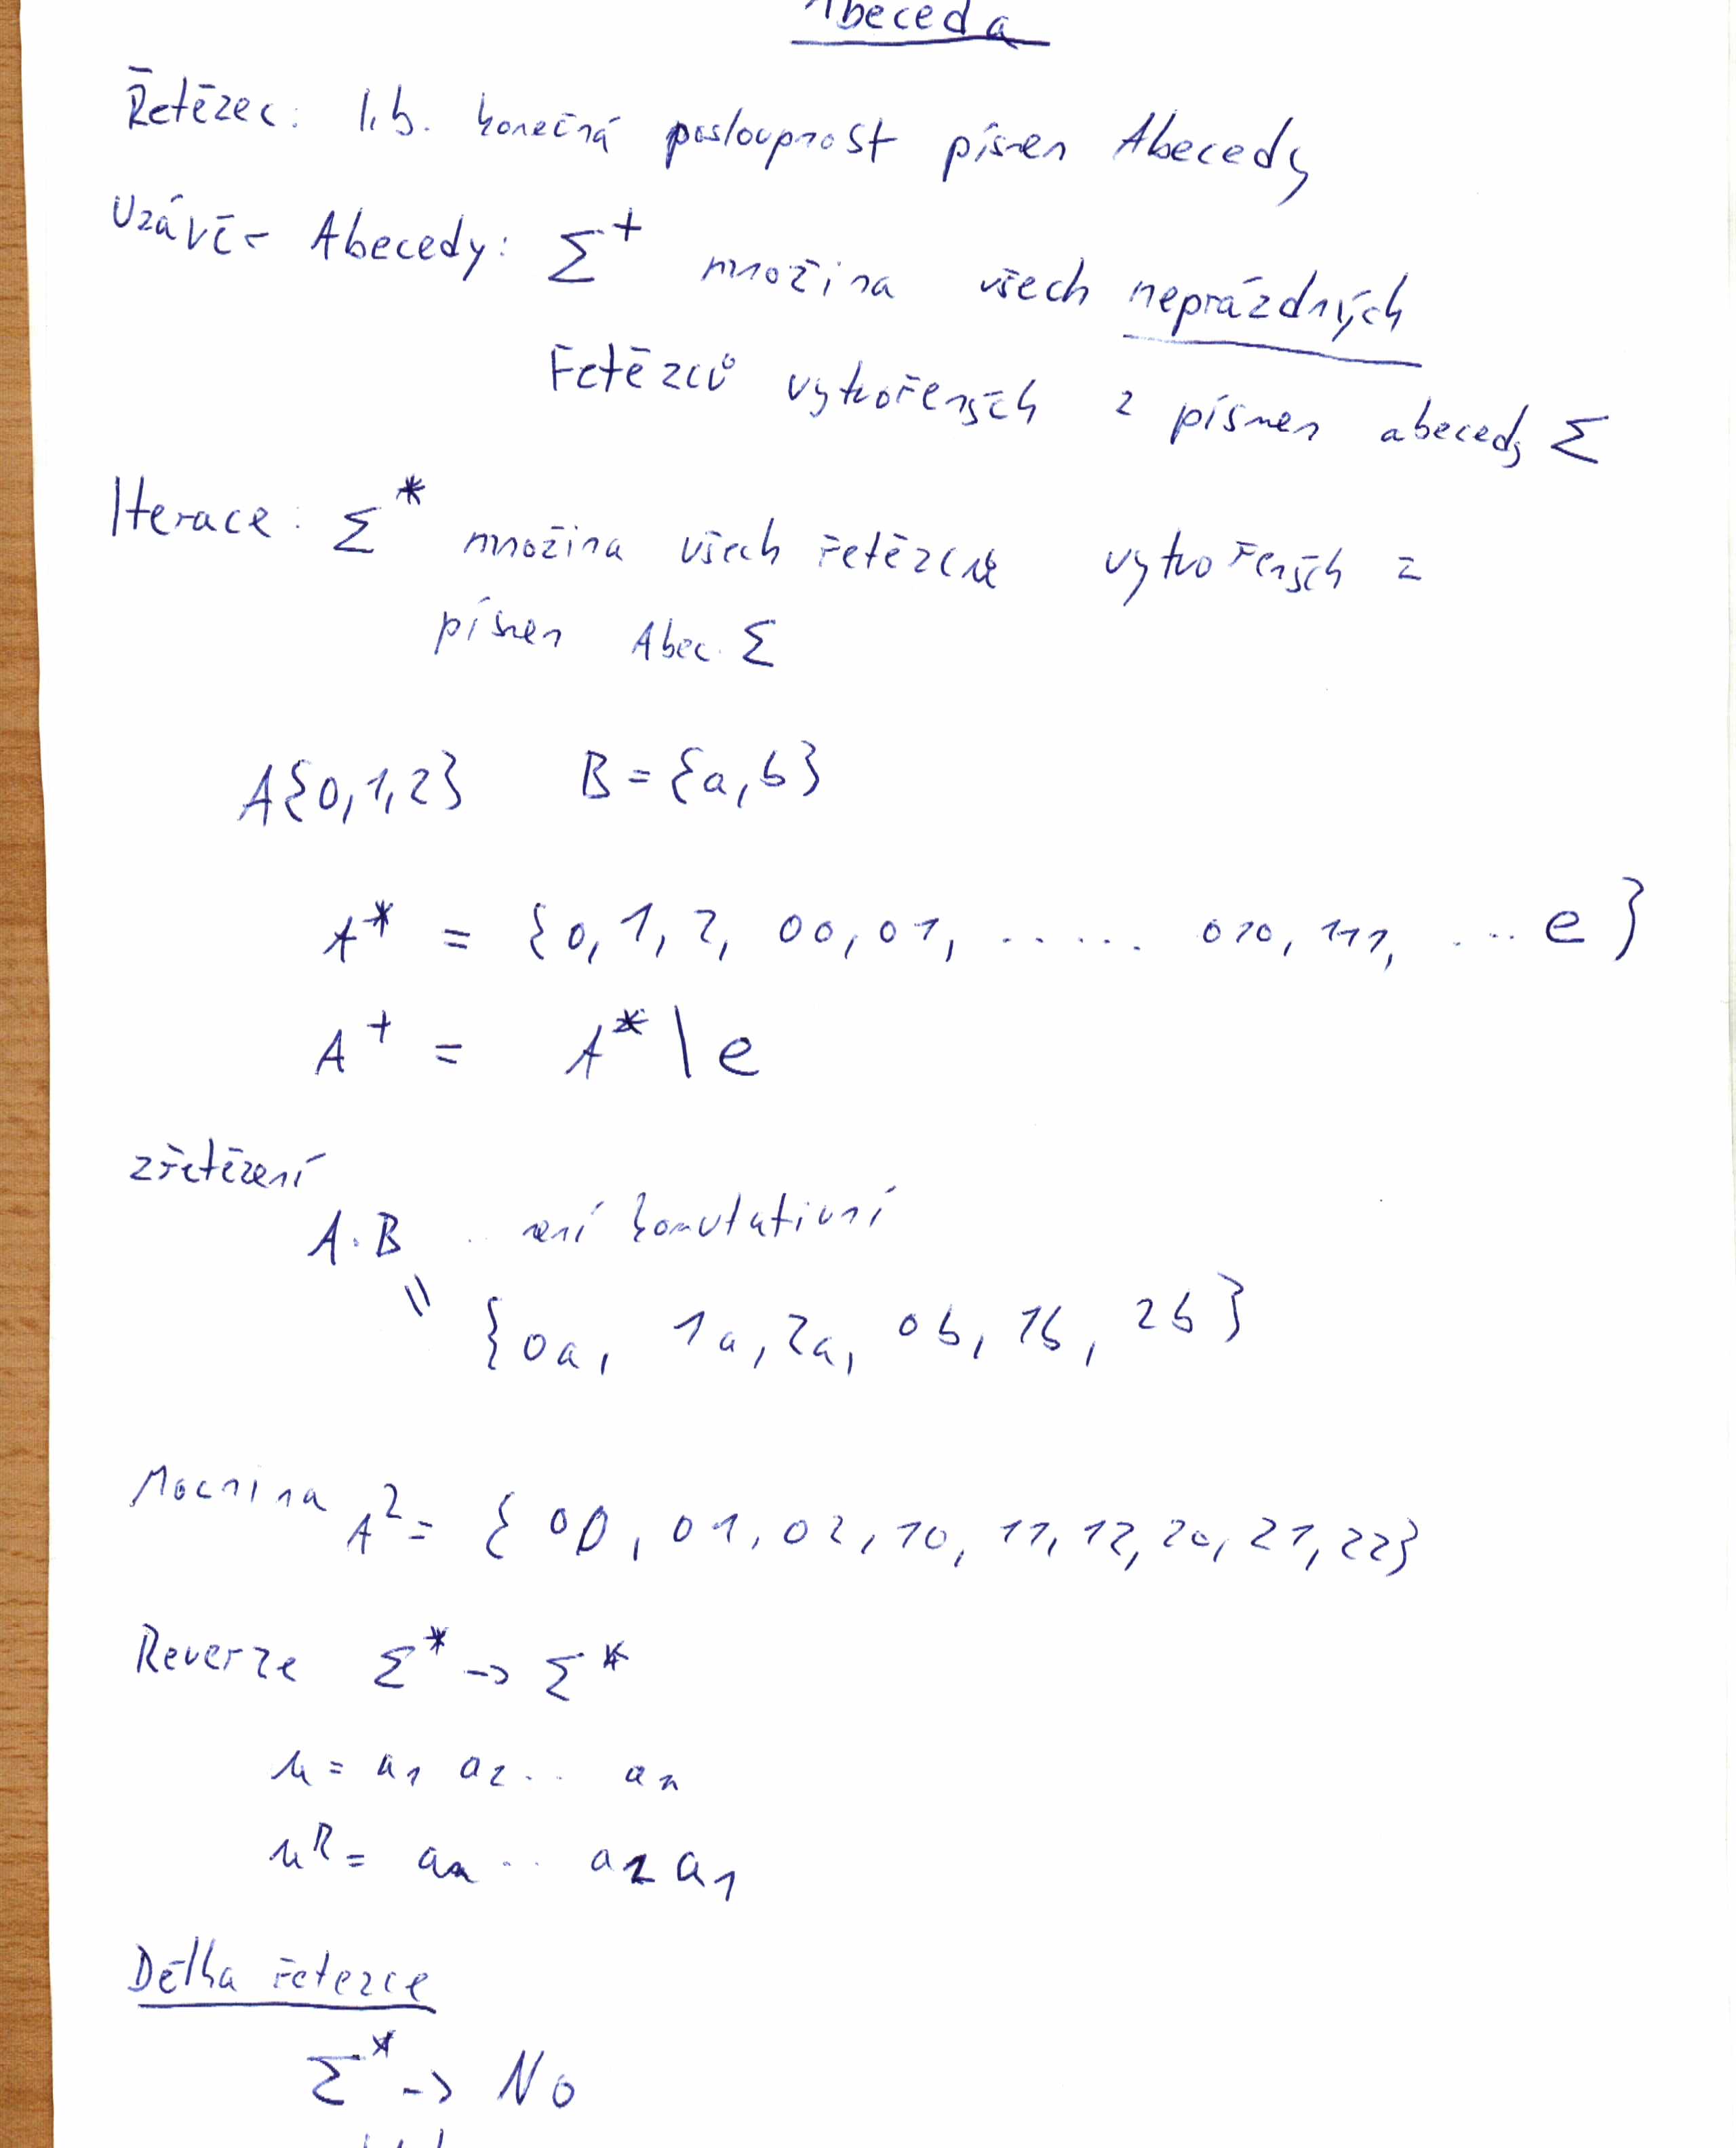 Abeceda
Řetězec: lib. konečná posloupnost písmen Abecedy
Uzávěr Abecedy: Σ⁺ množina všech neprázdných
řetězců vytvořených z písmen abecedy Σ
Iterace: Σ* množina všech řetězců vytvořených z
písmen Abec. Σ
A{0,1,2} B={a,b}
A* = {0, 1, 2, 00, 01, ...... 010, 111, ... e}
A⁺ = A* \ e
zřetězení
A.B .. není komutativní
= {0a, 1a, 2a, 0b, 1b, 2b}
Mocnina A² = {00, 01, 02, 10, 11, 12, 20, 21, 22}
Reverze Σ* -> Σ*
u = a₁ a₂ .. aₙ
uᴿ = aₙ .. a₂ a₁
Délka řetezce
Σ* -> N₀